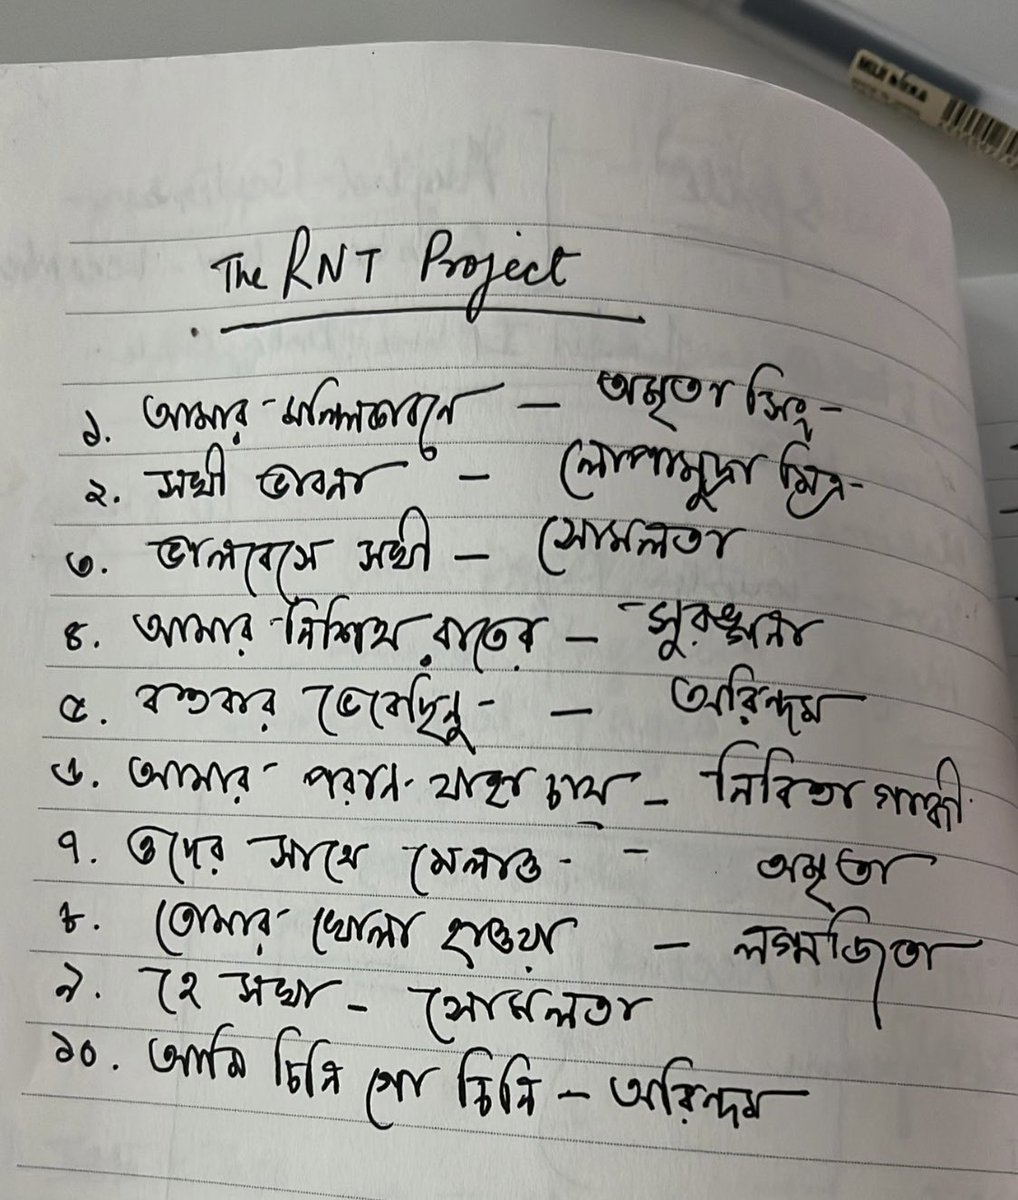 The RNT Project
১. আমার মল্লিকাবনে – অমৃতা সিং
২. সখী ভাবনা – লোপামুদ্রা মিত্র
৩. ভালবেসে সখী – সোমলতা
৪. আমার নিশিথ রাতের – সুরঙ্গনা
৫. বহুবার ভেবেছিনু – অরিন্দম
৬. আমার পরান যাহা চায় – নিবিতা গান্ধী
৭. ওদের সাথে মেলাও – অমৃতা
৮. তোমার খোলা হাওয়া – লগ্নজিতা
৯. হে সখা – সোমলতা
১০. আমি চিনি গো চিনি – অরিন্দম